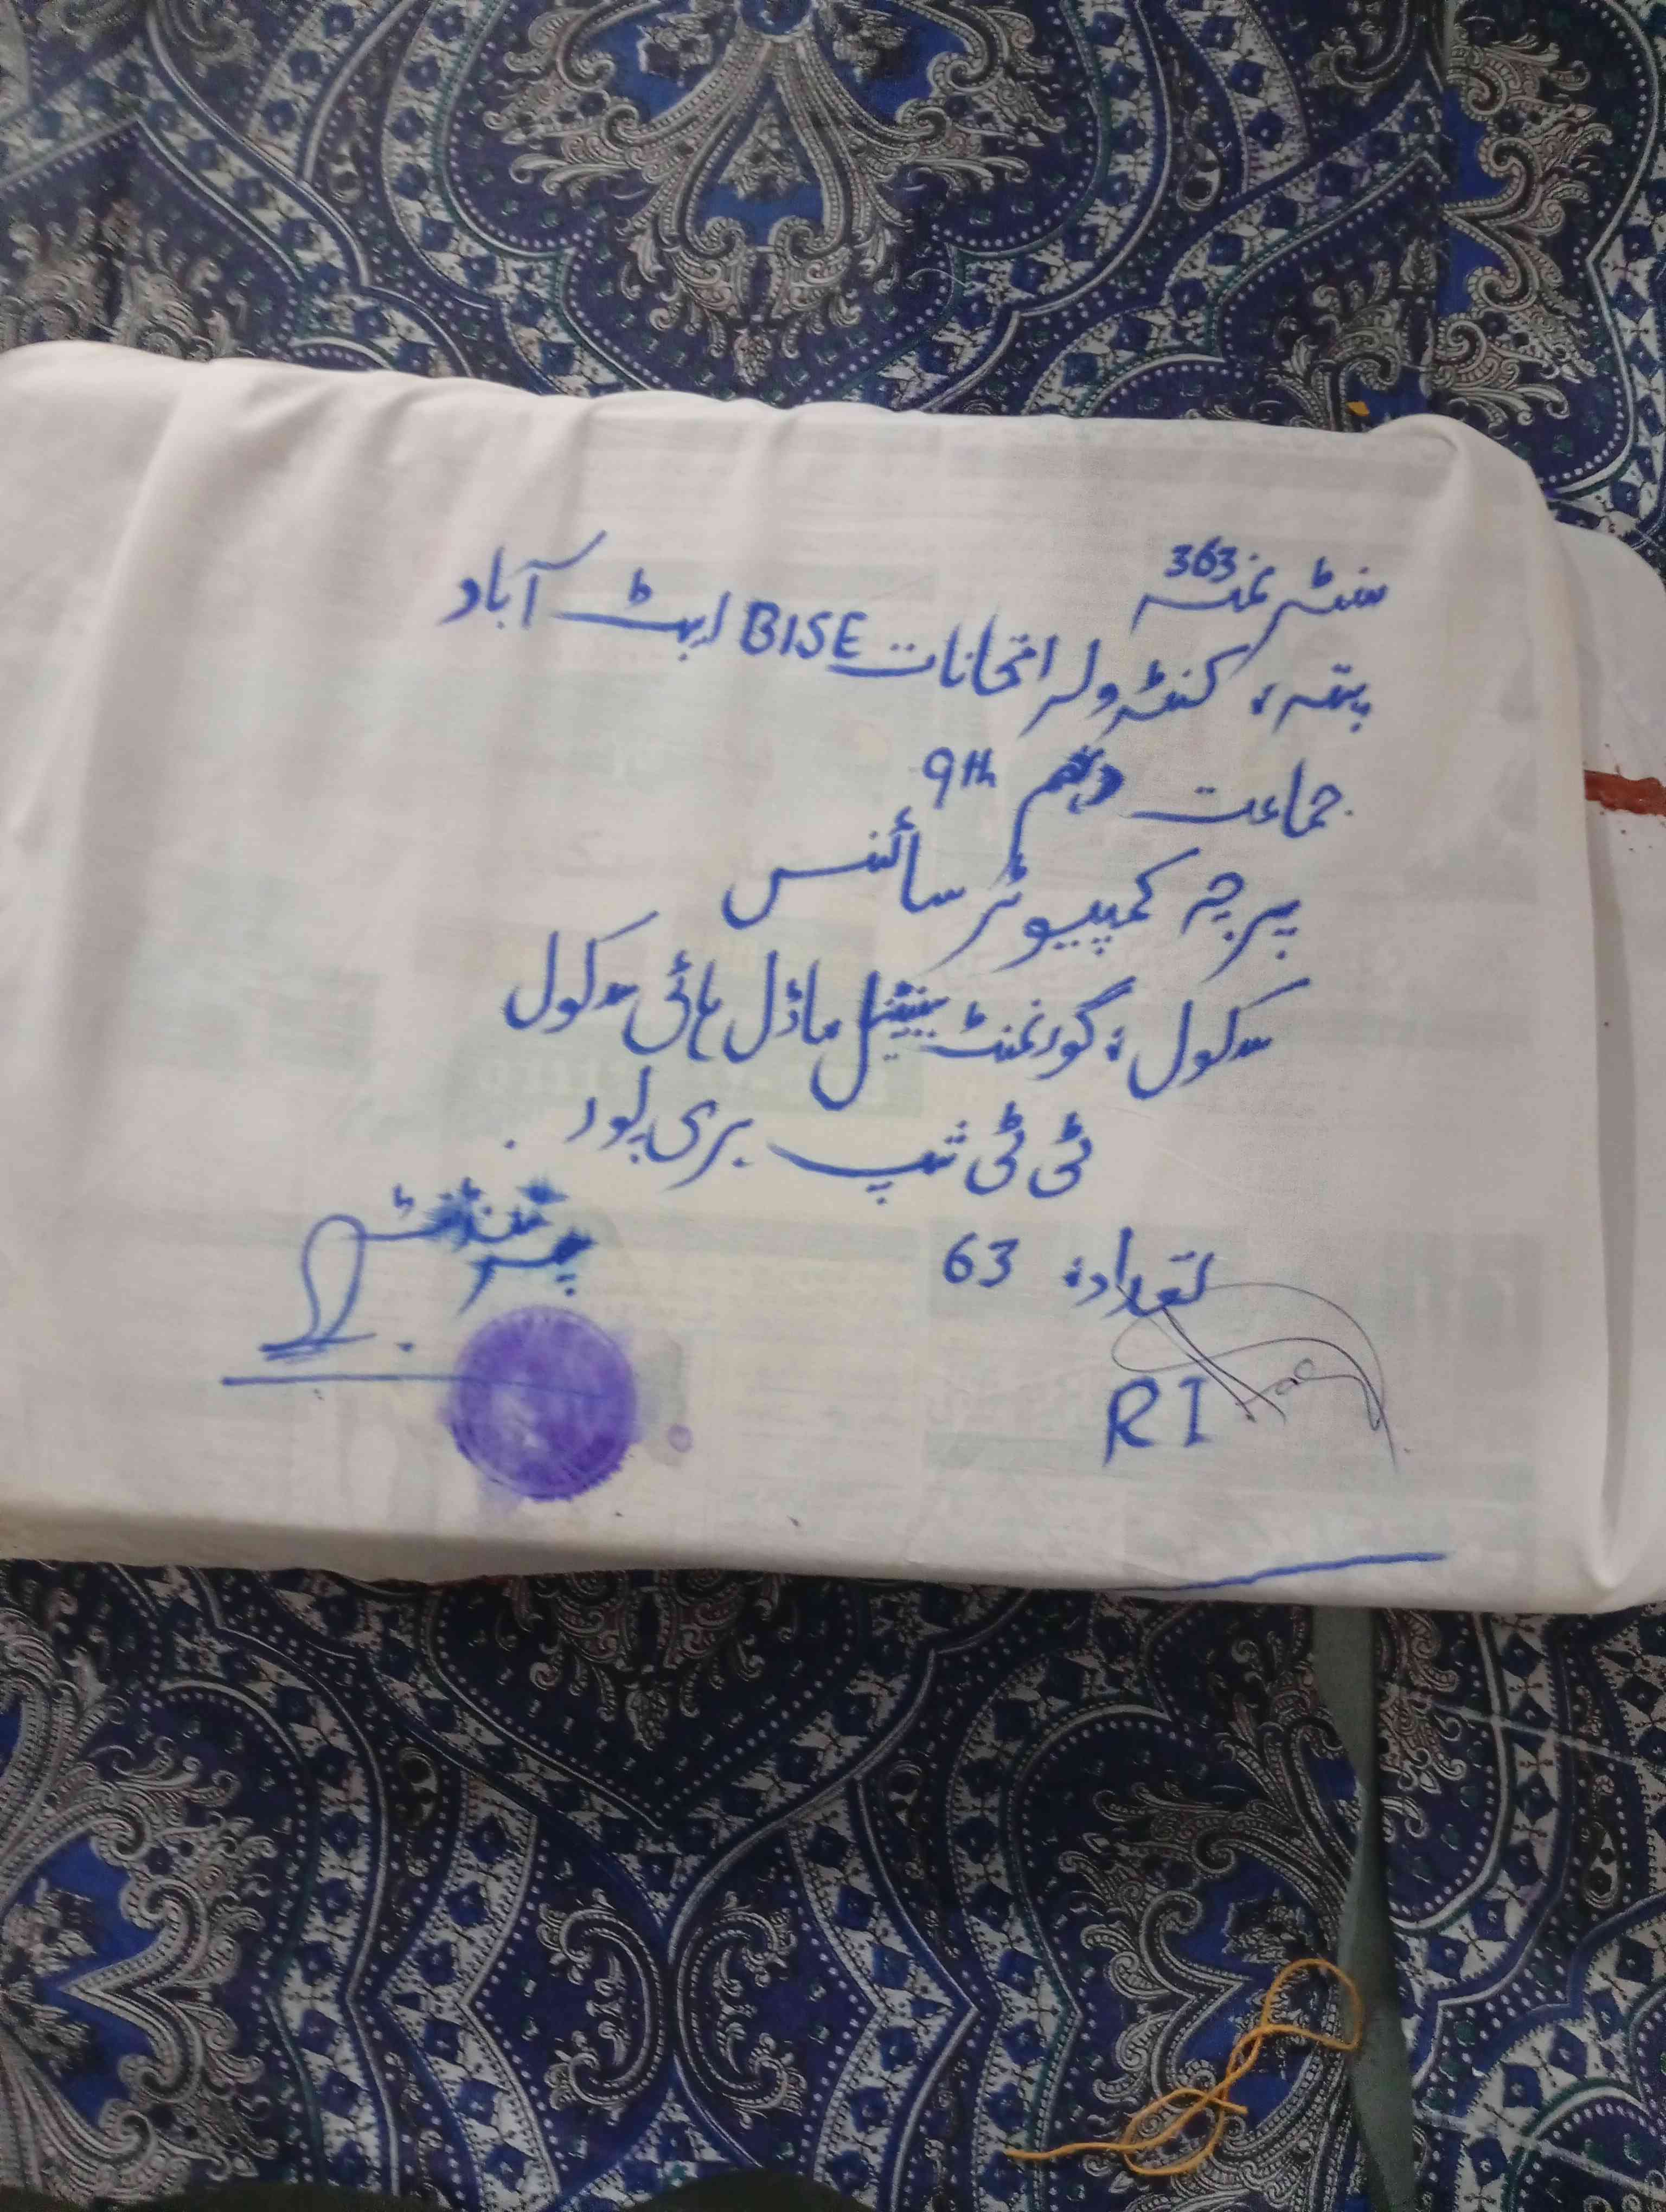 سنٹر نمبر 363
پتہ، کنٹرولر امتحانات BISE ایبٹ آباد
جماعت دہم 9th
پرچہ کمپیوٹر سائنس
سکول، گورنمنٹ سینٹینل ماڈل ہائی سکول
ٹی ٹی شپ ہری پور
تعداد، 63
سپرنٹنڈنٹ
RI